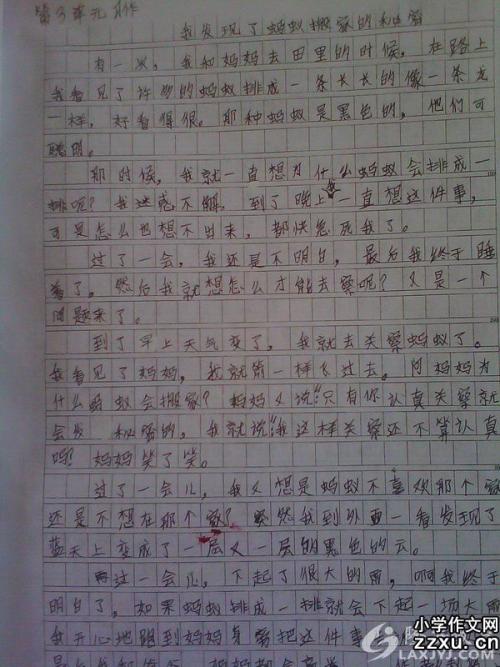 第3单元习作
我发现了蚂蚁搬家的秘密
有一次，我和妈妈去田里的时候，在路上
我看见了许多的蚂蚁排成一条长长的像一条龙
一样，好看得很。那种蚂蚁是黑色的，他们可
聪明。
那时候，我就一直想为什么蚂蚁会排成一
排呢？我迷惑不解，到了晚上一直想这件事，
可是怎么也想不出来，都快急死我了。
过了一会，我还是不明白，最后我终于睡
着了。然后我就想怎么才能去察呢？又是一个
问题来了。
到了早上天气变了，我就去关察蚂蚁了。
我看见了妈妈，我就箭一样飞过去。问妈妈为
什么蚂蚁会搬家？妈妈又说："只有你认真关察就
会发 秘密的，我就说"我这样关察还不算认真
吗？妈妈笑了笑。
过了一会儿，我又想是蚂蚁不喜欢那个家
还是不想在那个家？突然我到外面一看发现了
蓝天上变成了一层又一层的黑色的云。
过一会儿，下起了很大的雨，啊我终于
明白了，如果蚂蚁排成一排就会下起一场大雨
我开心地跑到妈妈身旁把这件事
小学作文网
zzxu.cn
LAXJYJ.COM